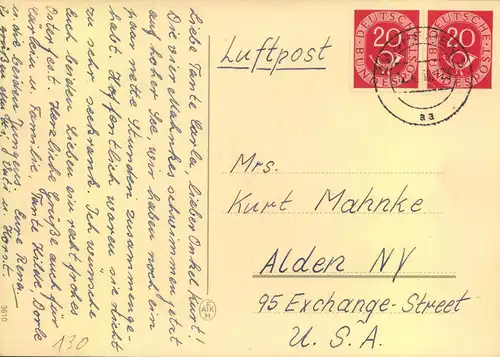 Liebe Tante Carla, lieber Onkel Kurt!
Die vier Mahnkes schwimmen jetzt
auf hoher See, wir haben noch ein
paar nette Stunden zusammenge-
habt. Hoffentlich waren sie nicht
zu sehr seekrank. Ich wünsche
Euch beiden Lieben ein recht frohes
Osterfest. Herzliche Grüße auch für
Carla u. Familie. Tante Hilde, Dorle
u. die beiden Jungens. Eure Rena.
Es grüßen Vati u. Horst.
130
9610
Luftpost
DEUTSCHE
20
BUNDESPOST
DEUTSCHE
20
BUNDESPOST
aa
AfK
H
Mrs.
Kurt Mahnke
Alden NY
95 Exchange-Street
U.S.A.